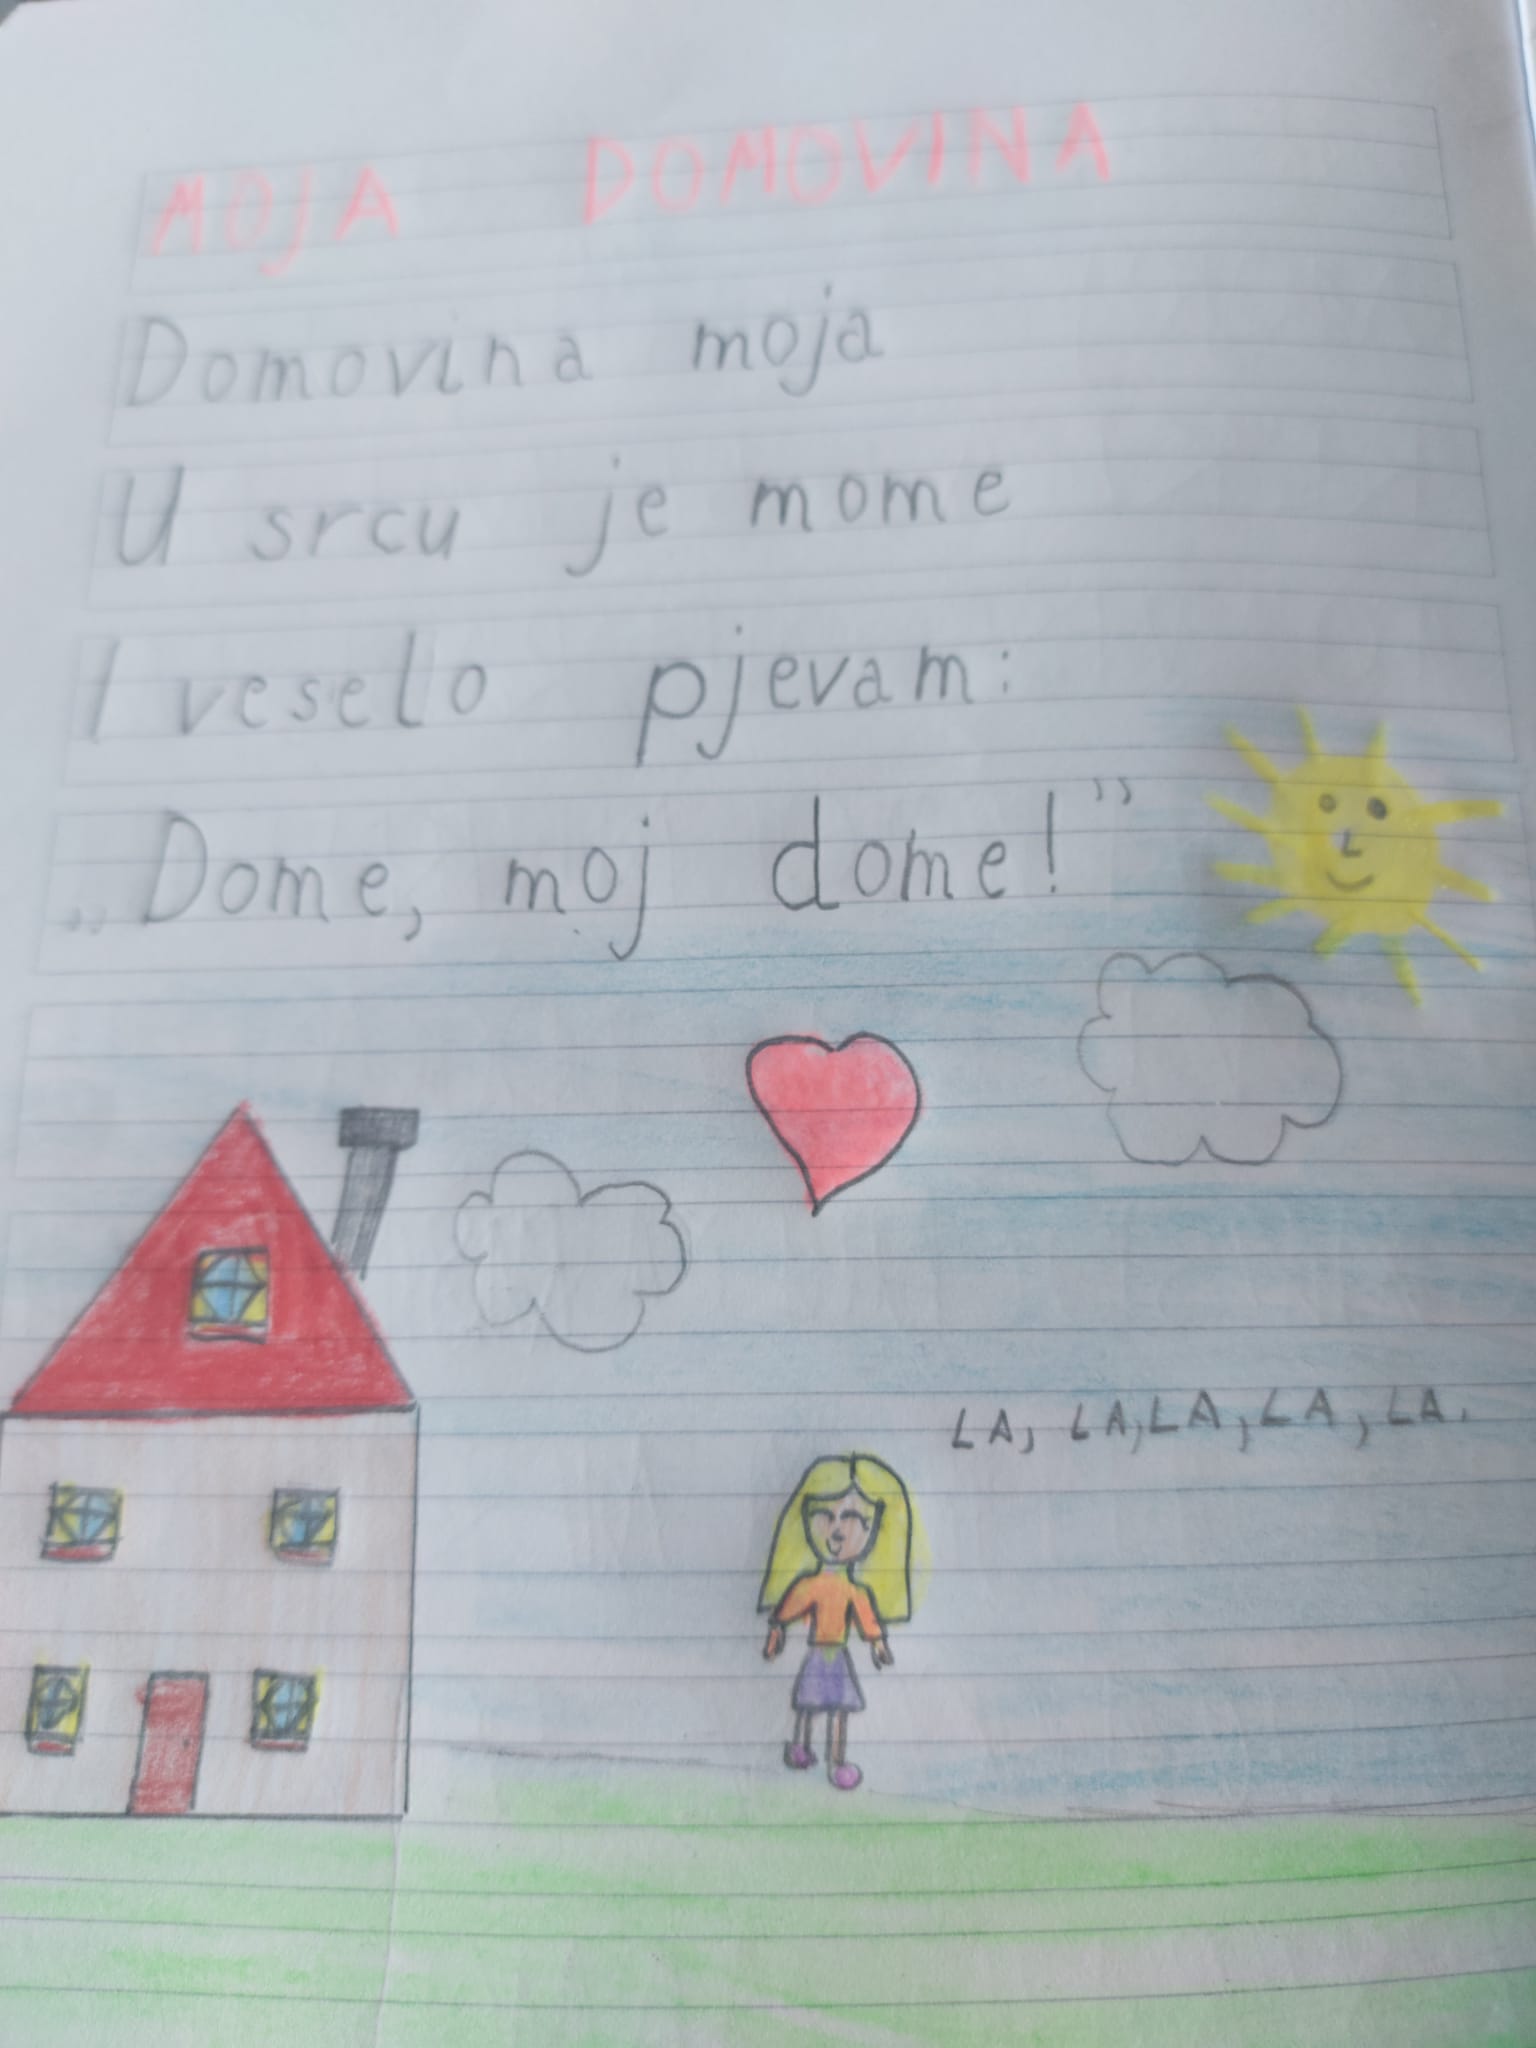 MOJA DOMOVINA
Domovina moja
U srcu je mome
I veselo pjevam:
„Dome, moj dome!”
LA, LA, LA, LA, LA.